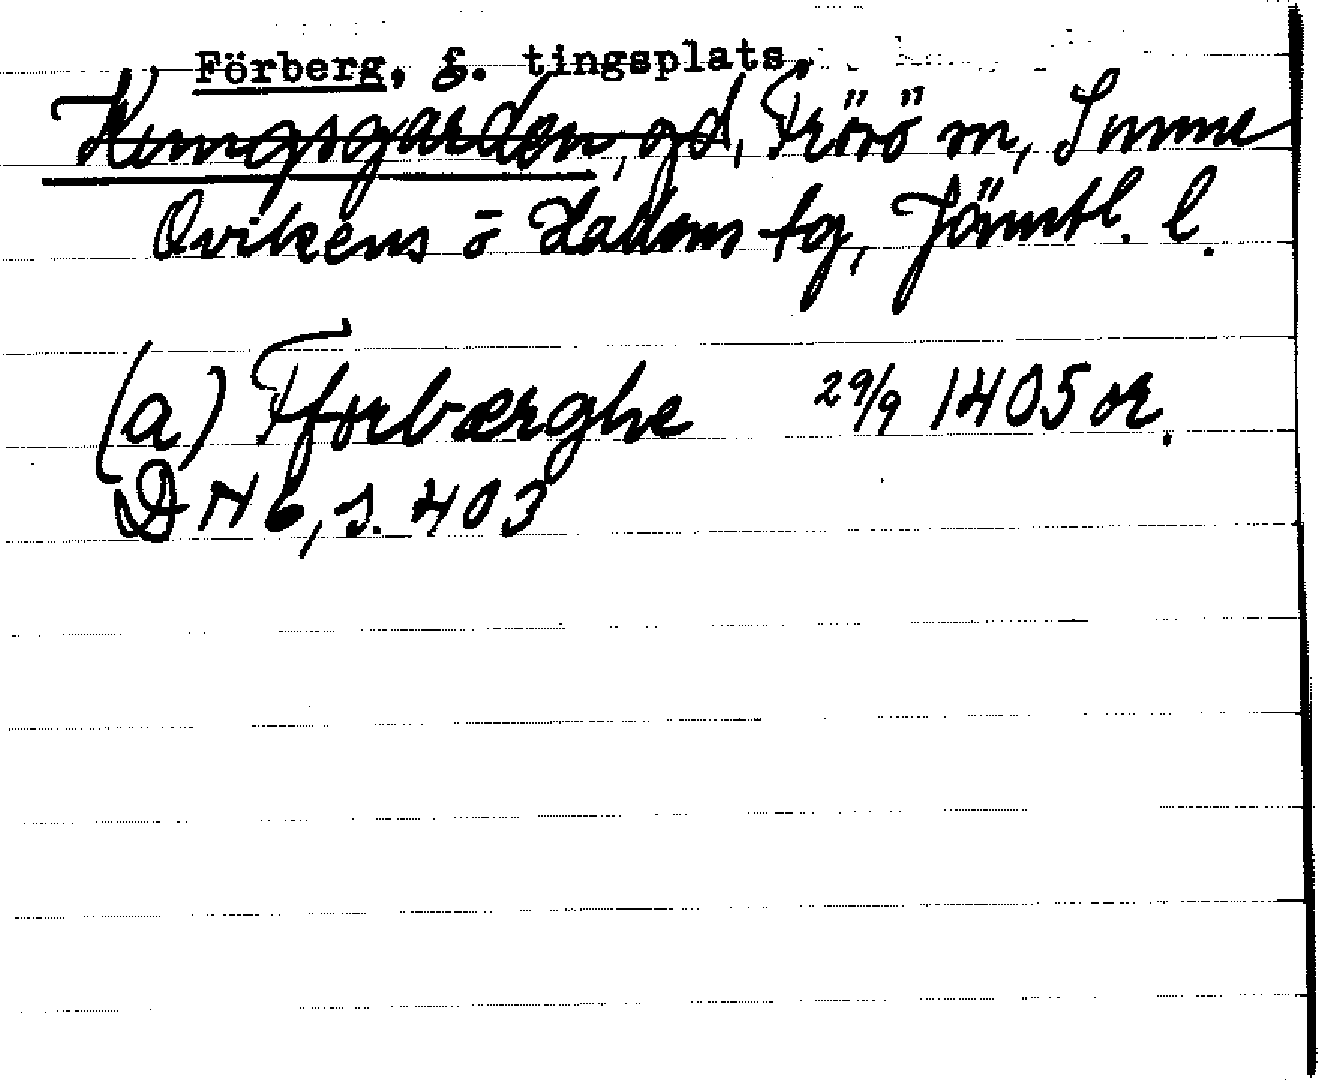 Förberg, f. tingsplats,
Kungsgården, gd, Frösö sn, Sunne
Ovikens o Hallens tg, Jämtl. l.
(a) Fforbærghe 29/9 1405 or.
DN 16, s. 403